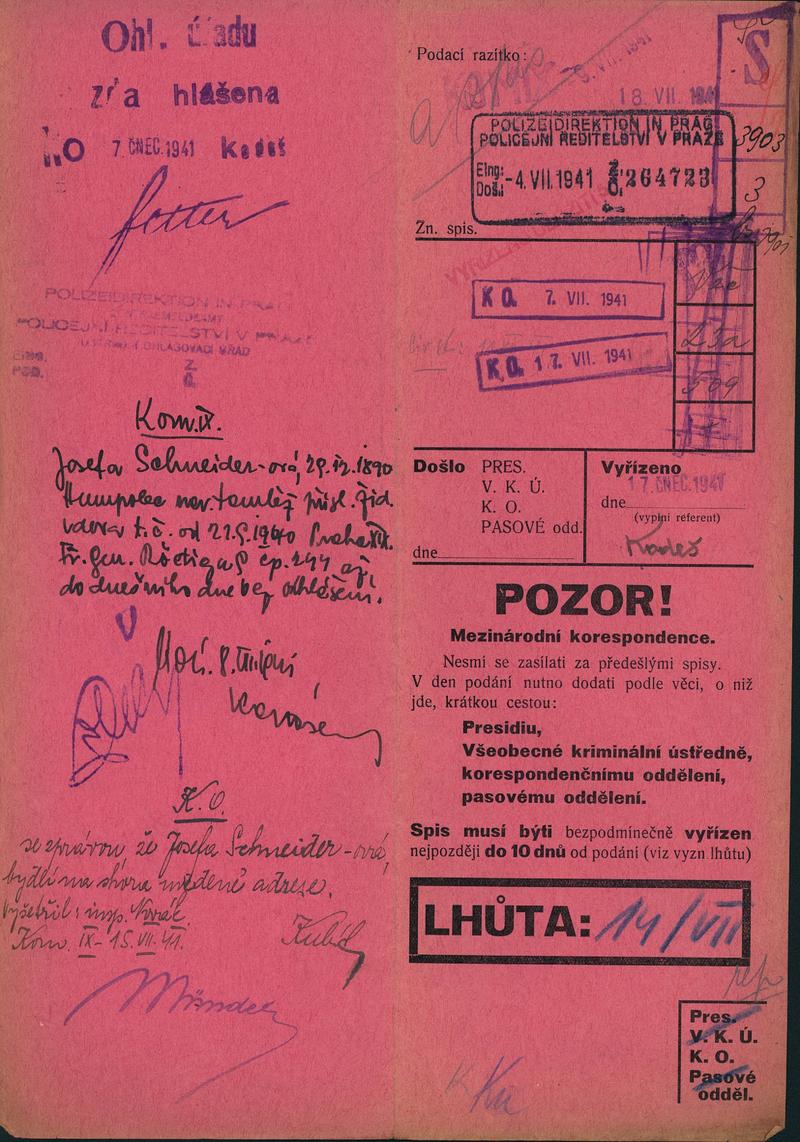 Ohl. úřadu
zda hlášena
KO 7. ČNEC. 1941 Kadeš
POLIZEIDIREKTION IN PRAG
POLICEJNÍ ŘEDITELSTVÍ V PRAZE
OHLAŠOVACÍ ÚŘAD
Z.
Č.
Kom. IX.
Josefa Schneider-ová, 29.12.1890
Humpolec nar. tamtéž přísl. žid.
vdova t. č. od 21.5.1940 Praha XIX.
čp. 244 až
do dnešního dne bez odhlášení.
K. O.
se zprávou, že Josefa Schneider-ová,
bydlí na shora uvedené adrese.
Vyšetřil: insp. Novák
Kom. IX - 15. VII. 41.
Podací razítko:
18 VII. 1941
S
POLIZEIDIREKTION IN PRAG
POLICEJNÍ ŘEDITELSTVÍ V PRAZE
3903
Eing:
Došl: -4. VII. 1941 Z. Č. 264723
3
Zn. spis.
K O. 7. VII. 1941
K. O. 17. VII. 1941
23a
509
Došlo PRES.
V. K. Ú.
K. O.
PASOVÉ odd.
dne
Vyřízeno
17 ČNEC. 1941
dne
(vyplní referent)
Kadeš
POZOR!
Mezinárodní korespondence.
Nesmí se zasílati za předešlými spisy.
V den podání nutno dodati podle věci, o niž
jde, krátkou cestou:
Presidiu,
Všeobecné kriminální ústředně,
korespondenčnímu oddělení,
pasovému oddělení.
Spis musí býti bezpodmínečně vyřízen
nejpozději do 10 dnů od podání (viz vyzn. lhůtu)
LHŮTA: 14/VII
Pres.
V. K. Ú.
K. O.
Pasové
odděl.